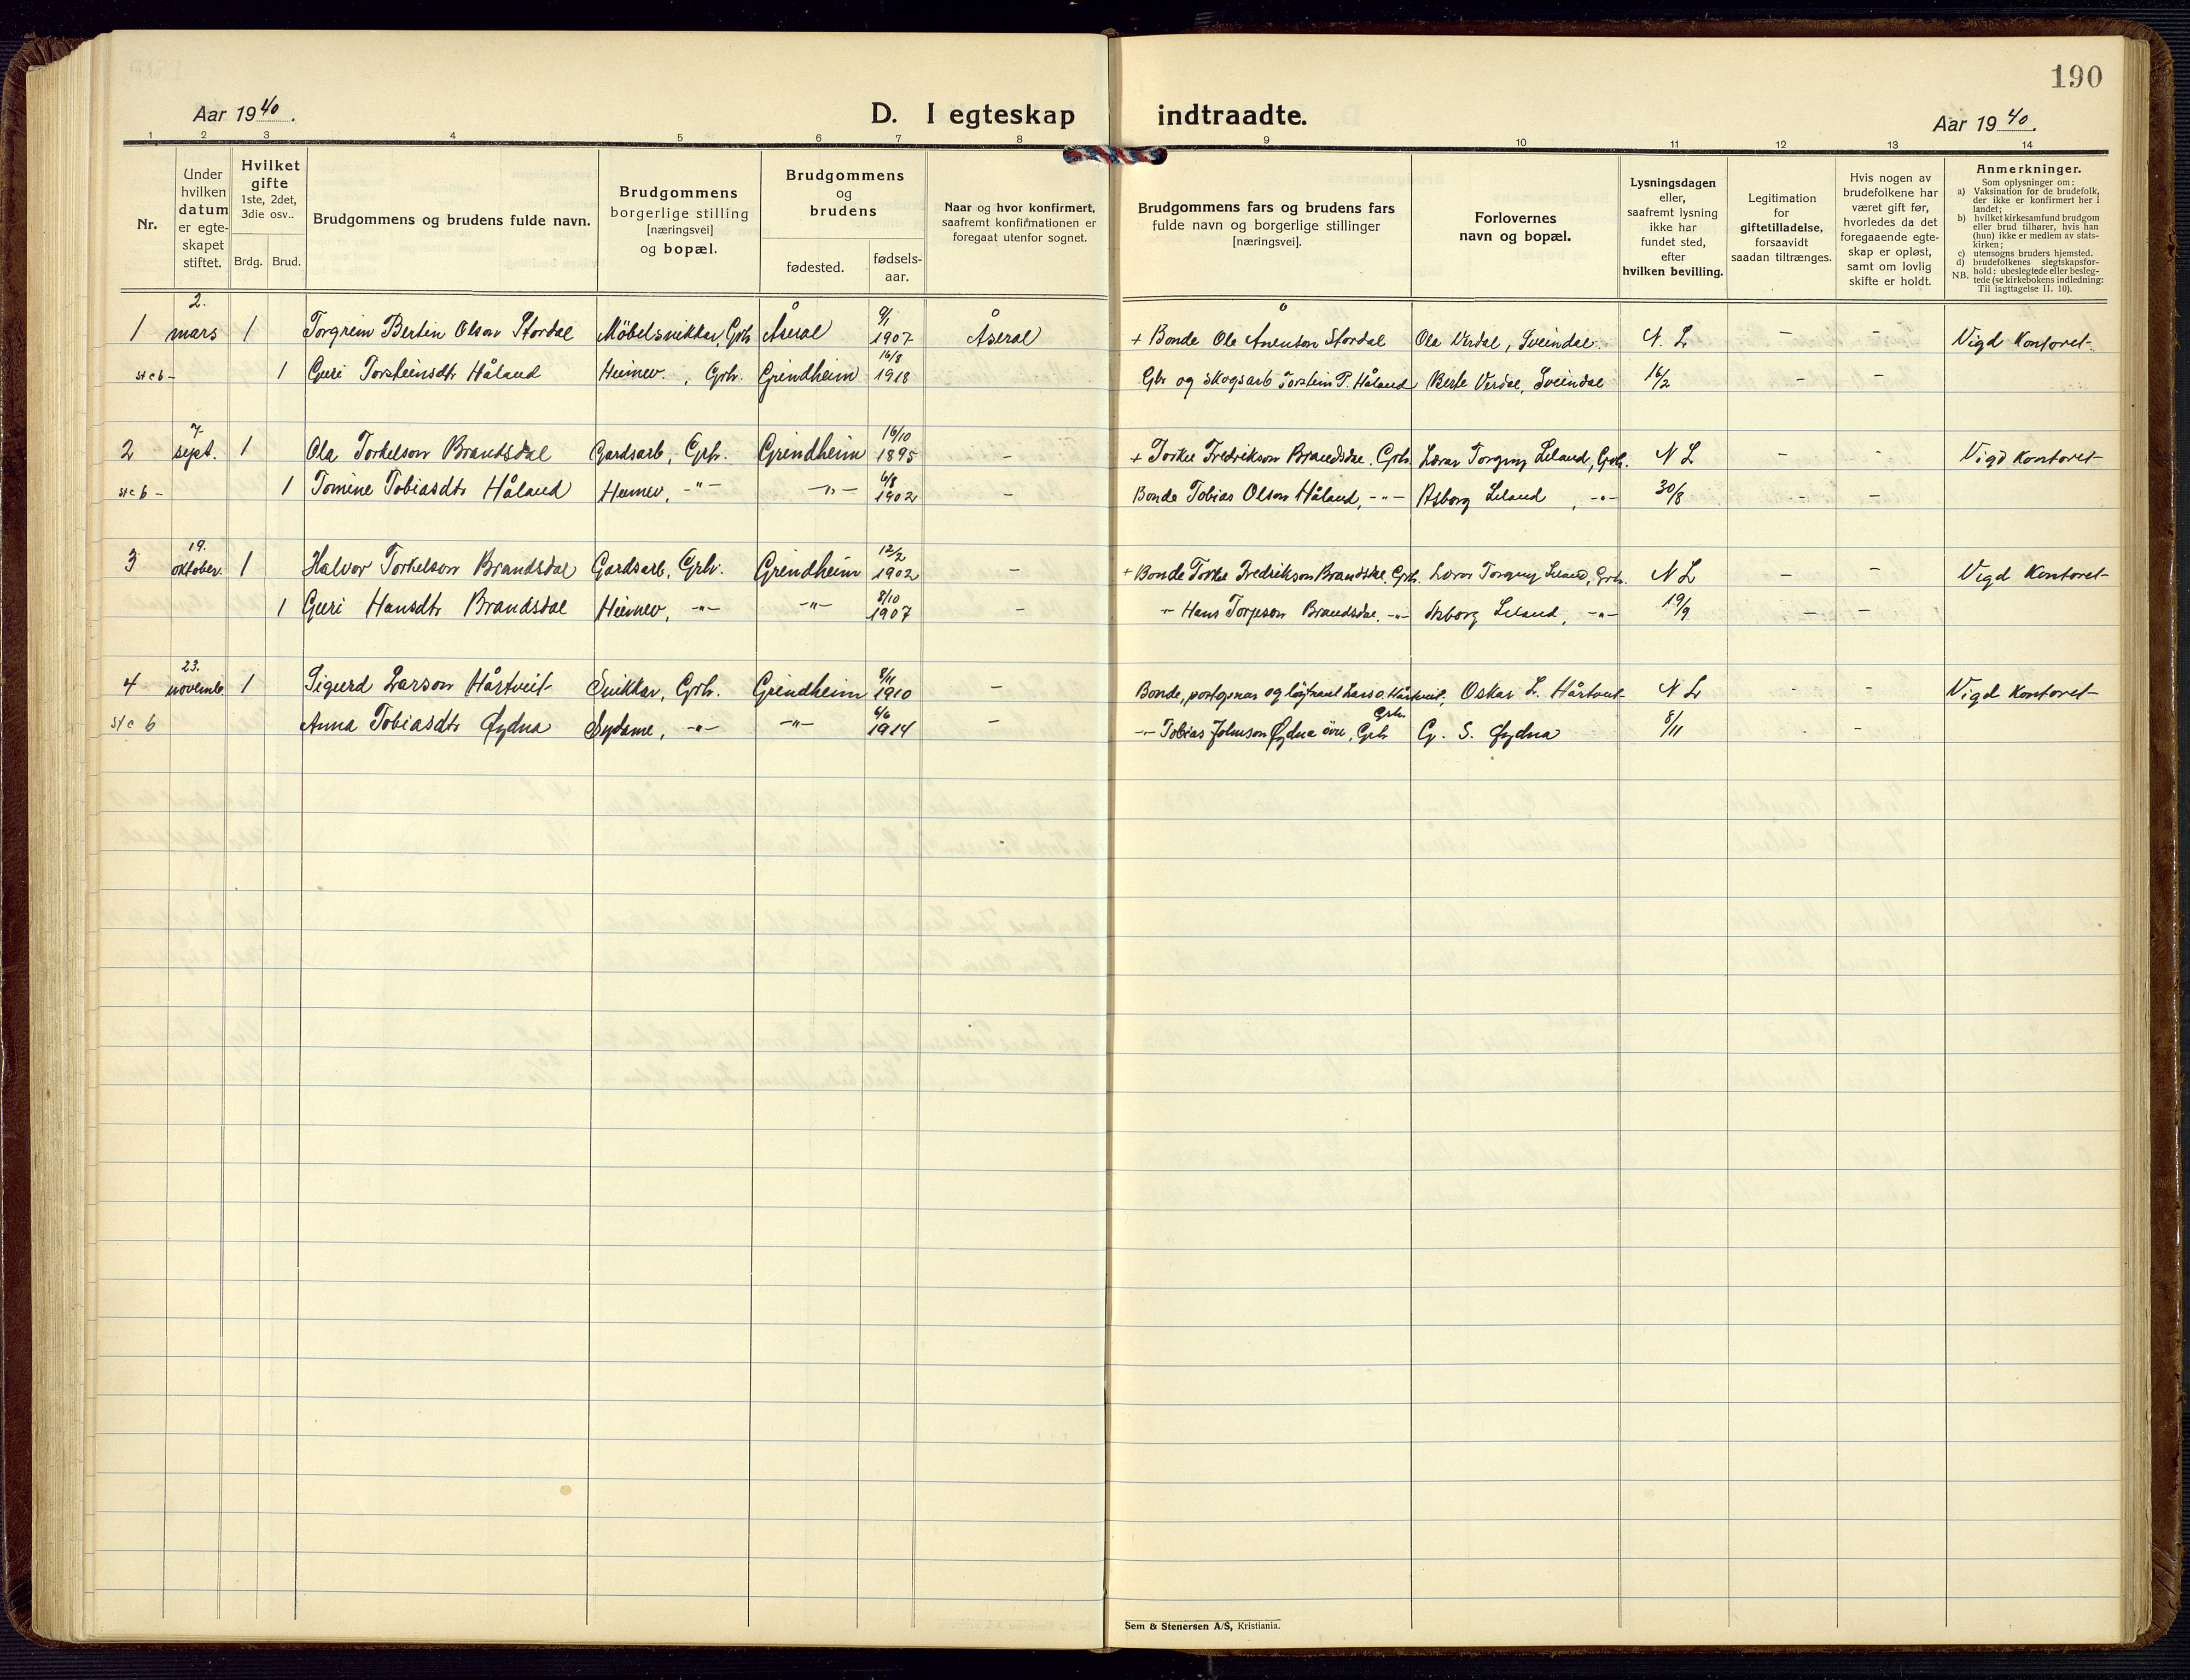 190
Aar 1940.
D. I egteskap indtraadte.
Aar 1940.
1 2 3 4 5 6 7 8 9 10 11 12 13 14
Nr.
Under
hvilken
datum
er egte-
skapet
stiftet.
Hvilket
gifte
1ste, 2det,
3die osv..
Brdg. Brud.
Brudgommens og brudens fulde navn.
Brudgommens
borgerlige stilling
[næringsvei]
og bopæl.
Brudgommens
og
brudens
fødested.
fødsels-
aar.
Naar og hvor konfirmert,
saafremt konfirmationen er
foregaat utenfor sognet.
Brudgommens fars og brudens fars
fulde navn og borgerlige stillinger
[næringsvei].
Forlovernes
navn og bopæl.
Lysningsdagen
eller,
saafremt lysning
ikke har
fundet sted,
efter
hvilken bevilling.
Legitimation
for
giftetilladelse,
forsaavidt
saadan tiltrænges.
Hvis nogen av
brudefolkene har
været gift før,
hvorledes da det
foregaaende egte-
skap er opløst,
samt om lovlig
skifte er holdt.
Anmerkninger.
Som oplysninger om:
a) Vaksination for de brudefolk,
der ikke er konfirmert her i
landet;
b) hvilket kirkesamfund brudgom
eller brud tilhører, hvis han
(hun) ikke er medlem av stats-
kirken;
c) utensogns bruders hjemsted.
d) brudefolkenes slegtskapsfor-
hold: ubeslegtede eller besleg-
NB. tede (se kirkebokens indledning:
Til iagttagelse II. 10).
1 2. mars 1 Torgrim Bertin Olson Stordal Möbelsnikkar, Grh. Åseral 9/1 1907 Åseral + Bonde Ole Ånenson Stordal Ola Verdal, Sveindal. N. L. – – Vigd Kontoret.
st c b – 1 Guri Torsteinsdtr Håland Heimev., Grh. Grindheim 16/8 1918 Gbr og skogsarb Torstein P. Håland Berte Verdal, Sveindal 16/2 – –
2 7. sept. 1 Ola Torkelson Brandsdal Gardsarb, Grh. Grindheim 16/10 1895 – + Torkel Fredrikson Brandsdal. Grh. Lærar Torgny Leland, Grh. N L – – Vigd Kontoret
st c b – 1 Tomine Tobiasdtr Håland Heimev, -"- -"- 6/8 1902 – Bonde Tobias Olson Håland, -"- Asborg Leland, -"- 30/8 – –
3 19. oktober. 1 Halvor Torkelson Brandsdal Gardsarb, Grh. Grindheim 12/2 1902 – + Bonde Torkel Fredrikson Brandsdal, Grh. Lærar Torgny Leland, Grh. N L – – Vigd Kontoret
1 Guri Hansdtr Brandsdal Heimev, -"- -"- 8/10 1907 – -"- Hans Torjeson Brandsdal. -"- Asborg Leland, -"- 19/9 – –
4 23. novemb. 1 Sigurd Larson Hårtveit Snikkar, Grh. Grindheim 8/11 1910 – Bonde, postopnar og Lars O. Hårtveit, Grh. Oskar L. Hårtveit N L – – Vigd Kontoret
st c b Anna Tobiasdtr Øydna Sydame, -"- -"- 6/6 1914 – -"- Tobias Johnson Øydna övre, Grh G. S. Øydna 8/11 –
Sem & Stenersen A/S, Kristiania.